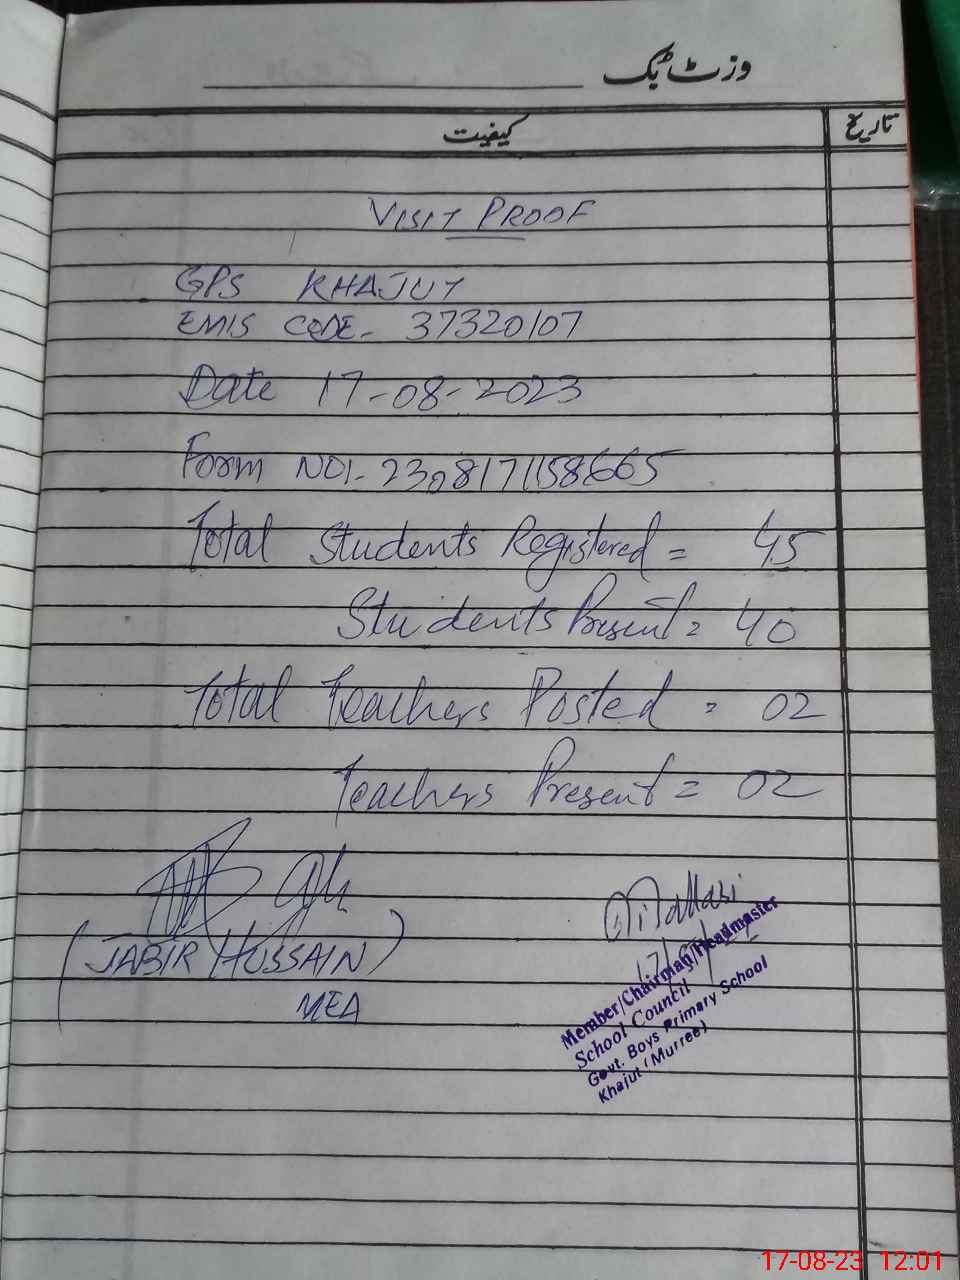 وزٹ بک
کیفیت
تاریخ
VISIT PROOF
GPS KHAJUT
EMIS CODE- 37320107
Date 17-08-2023
Form NO1- 2308171158665
Total Students Registered = 45
Students Present = 40
Total Teachers Posted = 02
Teachers Present = 02
(JABIR HUSSAIN)
MEA
Member/Chairman/Headmaster
School Council
Govt. Boys Primary School
Khajut (Murree)
17-08-23 12:01